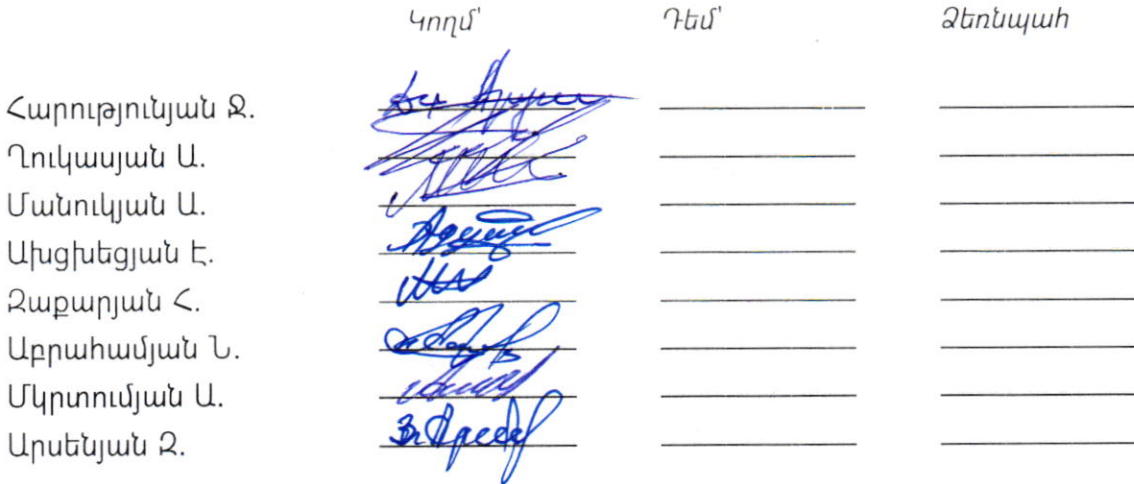 Կողմ՝ Դեմ՝ Ձեռնպահ
Հարությունյան Ջ.
Ղուկասյան Ա.
Մանուկյան Ա.
Ախցխեցյան Է.
Զաքարյան Հ.
Աբրահամյան Ն.
Մկրտումյան Ա.
Արսենյան Զ.